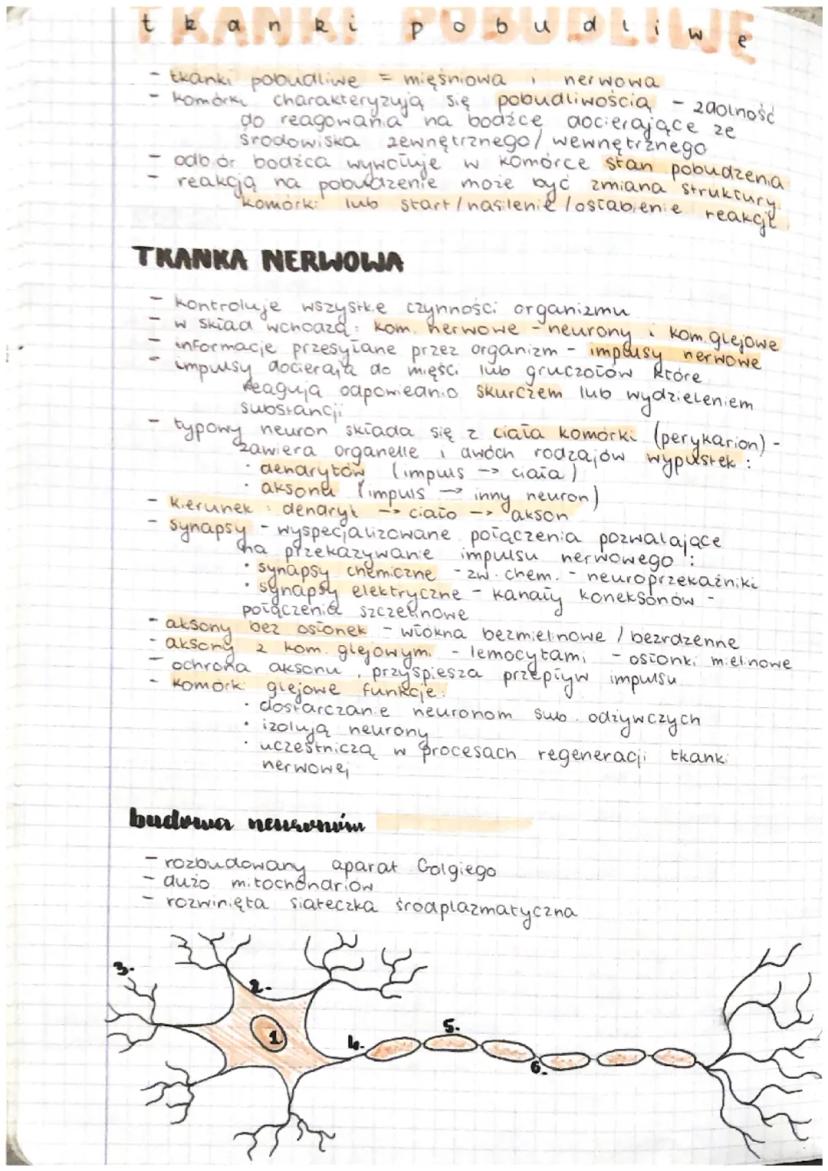 TKANKI POBUDLIWE
tkanki pobudliwe
- tkanki pobudliwe = mięśniowa i nerwowa
- komórki charakteryzują się pobudliwością - zdolność
do reagowania na bodźce docierające ze
środowiska zewnętrznego/wewnętrznego
- odbiór bodźca wywołuje w komórce stan pobudzenia
- reakcją na pobudzenie może być zmiana struktury
komórki lub start/nasilenie/osłabienie reakcji
TKANKA NERWOWA
- kontroluje wszystkie czynności organizmu
- w skład wchodzą: kom. nerwowe - neurony i kom. glejowe
- informacje przesyłane przez organizm - impulsy nerwowe
- impulsy docierają do mięści lub gruczołów które
reagują odpowiednio skurczem lub wydzieleniem
substancji
- typowy neuron składa się z ciała komórki (perykarion) -
zawiera organelle i dwóch rodzajów wypustek:
· dendrytów (impuls -> ciała)
· aksonu (impuls -> inny neuron)
- kierunek: dendryt -> ciało -> akson
- synapsy - wyspecjalizowane połączenia pozwalające
na przekazywanie impulsu nerwowego:
· synapsy chemiczne - zw. chem. - neuroprzekaźniki
· synapsy elektryczne - kanały koneksonów -
połączenia szczelinowe
- aksony bez osłonek - włókna bezmielinowe / bezrdzenne
- aksony z kom. glejowymi - lemocytami - osłonki mielinowe
- ochrona aksonu, przyśpiesza przepływ impulsu
- komórki glejowe funkcje:
· dostarczanie neuronom sub. odżywczych
· izolują neurony
· uczestniczą w procesach regeneracji tkanki
nerwowej
budowa neuronów
- rozbudowany aparat Golgiego
- dużo mitochondriów
- rozwinięta siateczka śródplazmatyczna
3.
2.
1
4.
5.
6.